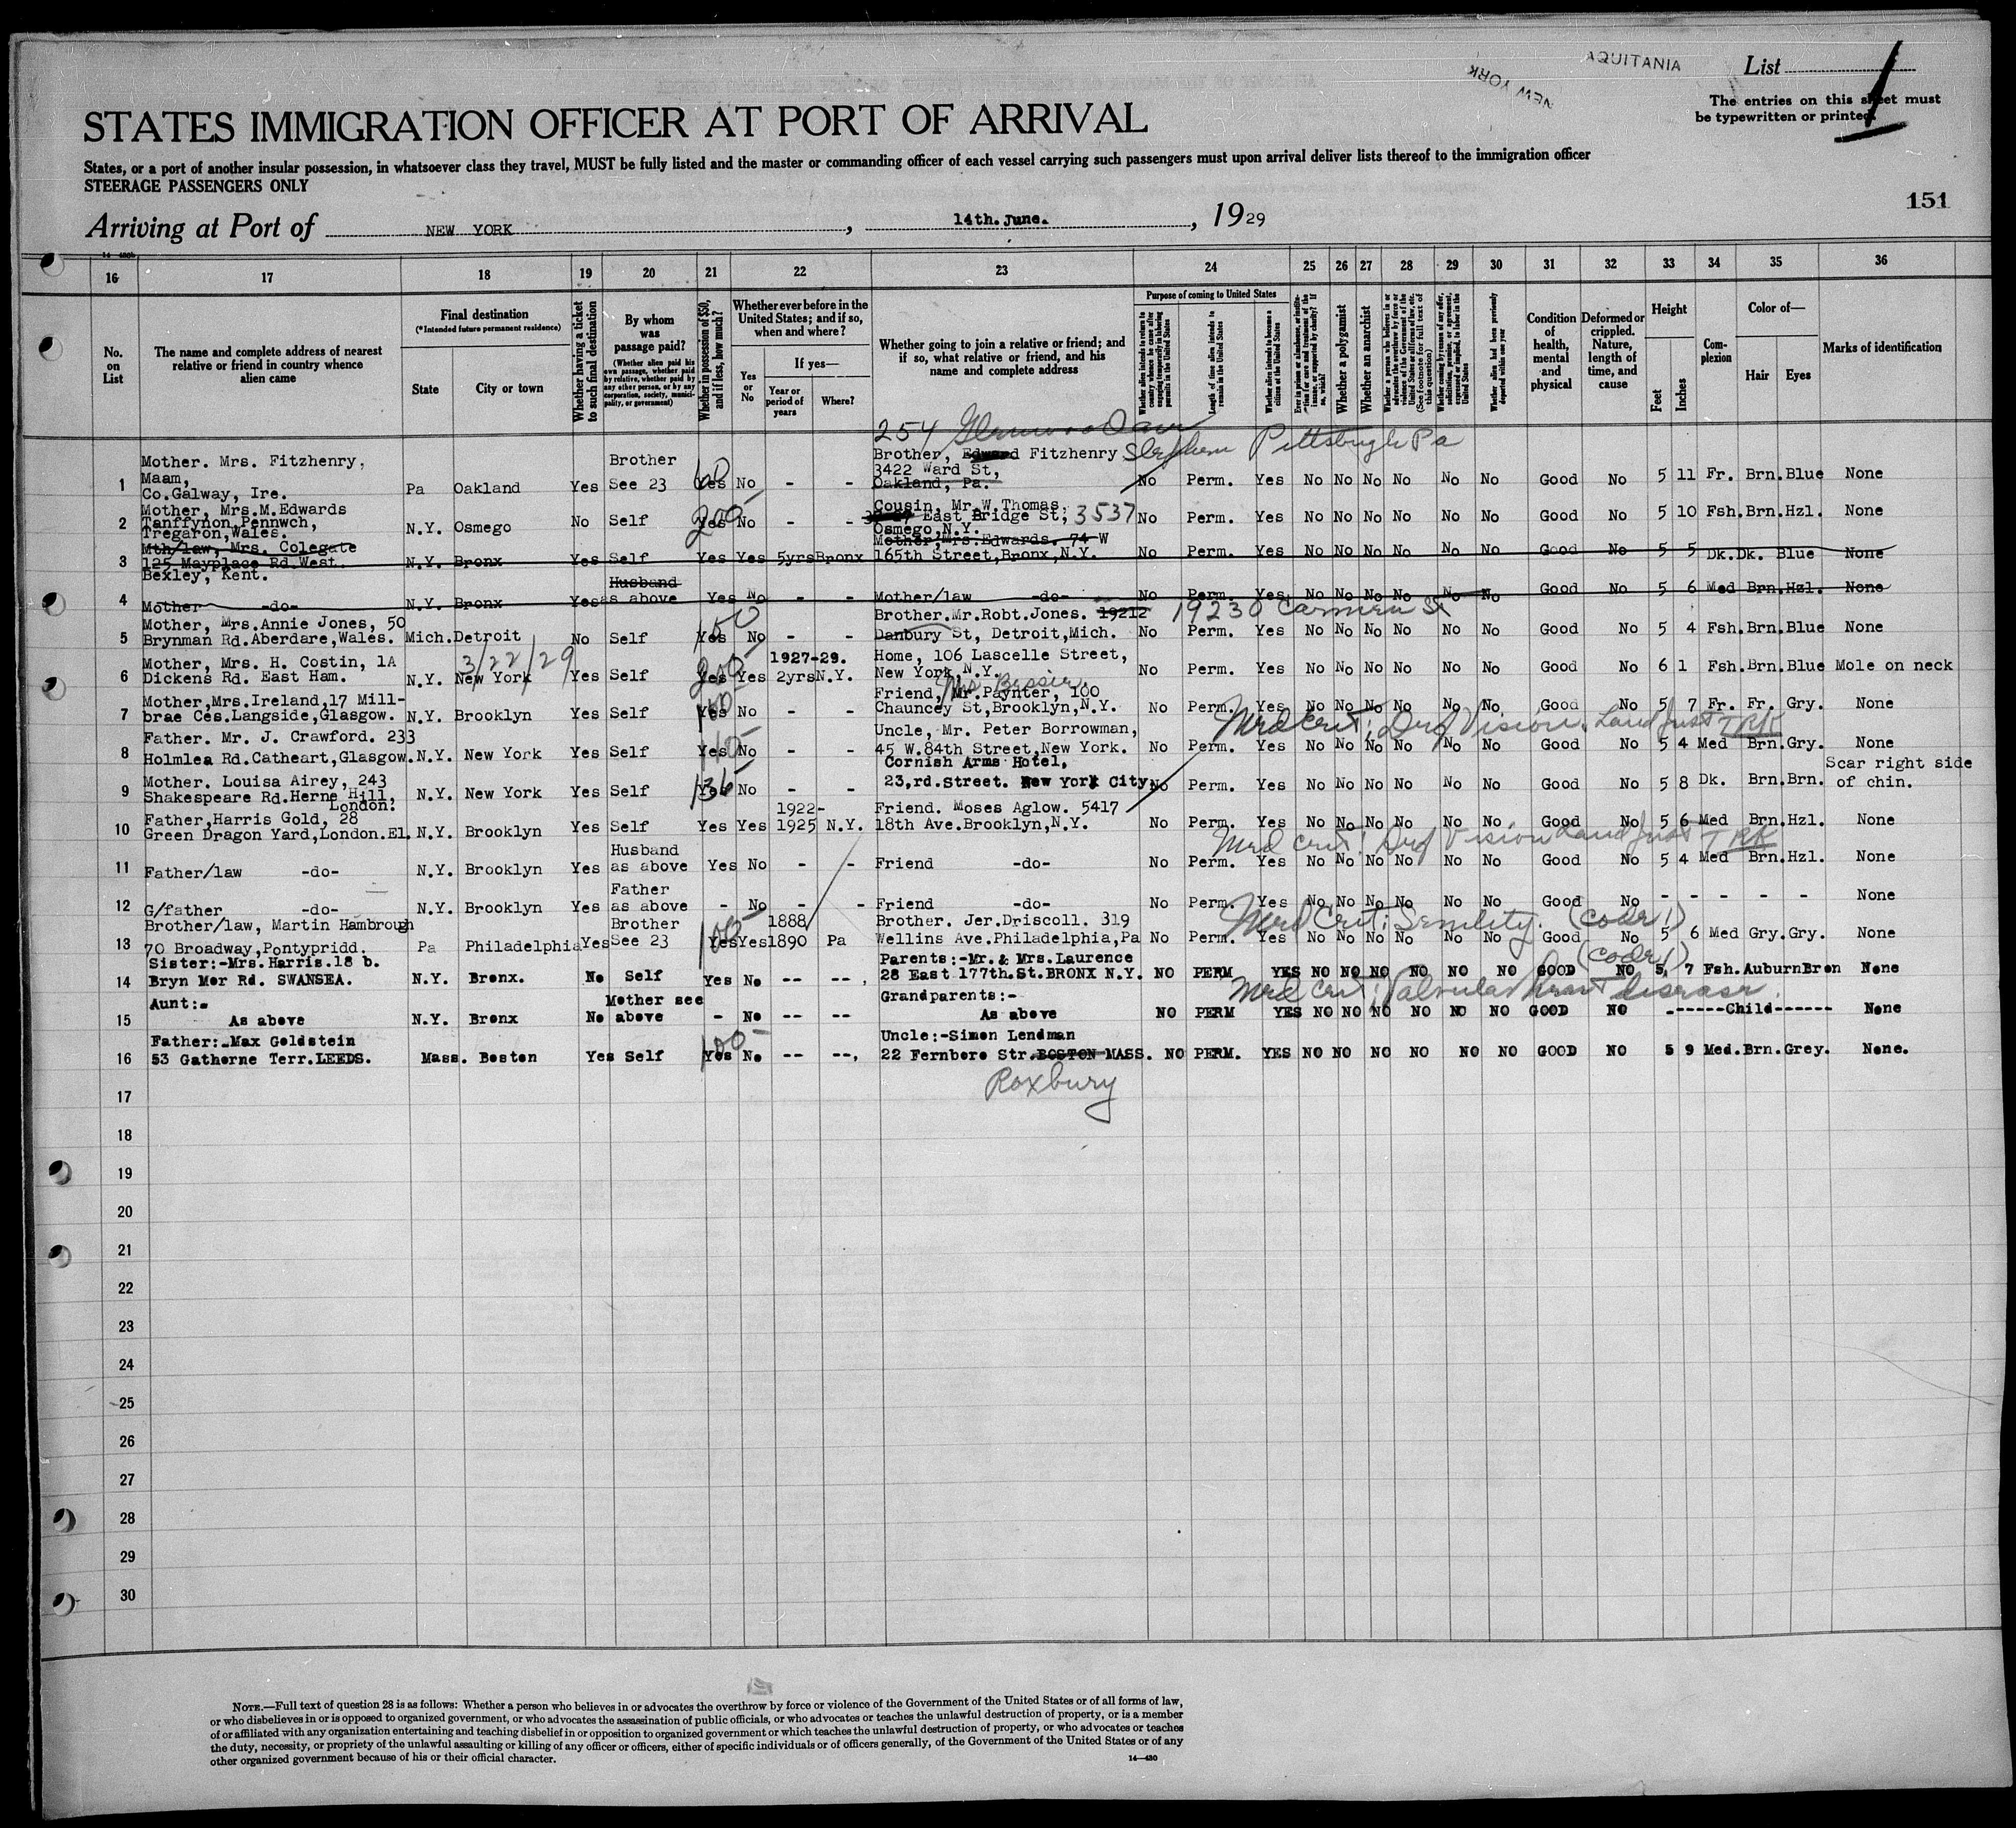 AQUITANIA
NEW YORK
List 1
The entries on this sheet must
be typewritten or printed.
STATES IMMIGRATION OFFICER AT PORT OF ARRIVAL
States, or a port of another insular possession, in whatsoever class they travel, MUST be fully listed and the master or commanding officer of each vessel carrying such passengers must upon arrival deliver lists thereof to the immigration officer
STEERAGE PASSENGERS ONLY
151
Arriving at Port of NEW YORK, 14th.June., 1929
16 17 18 19 20 21 22 23 24 25 26 27 28 29 30 31 32 33 34 35 36
No. on List
The name and complete address of nearest relative or friend in country whence alien came
Final destination
(*Intended future permanent residence)
State
City or town
Whether having a ticket to such final destination
By whom was passage paid?
(Whether alien paid his own passage, whether paid by relative, whether paid by any other person, or by any corporation, society, municipality, or government)
Whether in possession of $50, and if less, how much?
Whether ever before in the United States; and if so, when and where?
Yes or No
If yes—
Year or period of years
Where?
Whether going to join a relative or friend; and if so, what relative or friend, and his name and complete address
Purpose of coming to United States
Whether alien intends to return to country whence he came after engaging temporarily in laboring pursuits in the United States
Length of time alien intends to remain in the United States
Whether alien intends to become a citizen of the United States
Whether a polygamist
Whether an anarchist
Condition of health, mental and physical
Deformed or crippled. Nature, length of time, and cause
Height
Feet
Inches
Complexion
Color of—
Hair
Eyes
Marks of identification
254
Stephen Pittsburgh Pa
1 Mother. Mrs. Fitzhenry, Maam, Co.Galway, Ire. Pa Oakland Yes Brother See 23 Yes 60 No - - Brother, Edward Fitzhenry 3422 Ward St, Oakland, Pa. No Perm. Yes No No No No No No Good No 5 11 Fr. Brn. Blue None
2 Mother, Mrs.M.Edwards Tanffynon,Pennwch, Tregaron,Wales. N.Y. Osmego No Self Yes 200 No - - Cousin, Mr.W.Thomas, East Bridge St, 3537 Osmego,N.Y. No Perm. Yes No No No No No No Good No 5 10 Fsh. Brn. Hzl. None
3 Mth/law, Mrs. Colegate 125 Mayplace Rd.West. Bexley, Kent. N.Y. Bronx Yes Self Yes Yes 5yrs Bronx Mother,Mrs.Edwards. 74 W 165th Street,Bronx,N.Y. No Perm. Yes No No No No No No Good No 5 5 Dk. Dk. Blue None
4 Mother -do- N.Y. Bronx Yes Husband as above Yes No - - Mother/law -do- No Perm. Yes No No No No No No Good No 5 6 Med Brn. Hzl. None
5 Mother, Mrs.Annie Jones, 50 Brynman Rd.Aberdare,Wales. Mich. Detroit No Self Yes 150 No - - Brother.Mr.Robt.Jones. 19212 19230 Carmen St Danbury St, Detroit,Mich. No Perm. Yes No No No No No No Good No 5 4 Fsh. Brn. Blue None
6 Mother, Mrs. H. Costin, 1A Dickens Rd. East Ham. N.Y. New York 3/22/29 Yes Self Yes 200 Yes 1927-29. 2yrs N.Y. Home, 106 Lascelle Street, New York,N.Y. No Perm. Yes No No No No No No Good No 6 1 Fsh. Brn. Blue Mole on neck
7 Mother,Mrs.Ireland,17 Millbrae Ces.Langside,Glasgow. N.Y. Brooklyn Yes Self Yes No - - Friend, Mr.Paynter, 100 Chauncey St,Brooklyn,N.Y. No Perm. Yes No No No No No No Good No 5 7 Fr. Fr. Gry. None
Med Cert: Def Vision
8 Father. Mr. J. Crawford. 233 Holmlea Rd.Cathcart,Glasgow. N.Y. New York Yes Self Yes No - - Uncle, Mr. Peter Borrowman, 45 W.84th Street,New York. No Perm. Yes No No No No No No Good No 5 4 Med Brn. Gry. None
9 Mother. Louisa Airey, 243 Shakespeare Rd.Herne Hill, London. N.Y. New York Yes Self Yes No - - Cornish Arms Hotel, 23,rd.Street. New York City No Perm. Yes No No No No No No Good No 5 8 Dk. Brn. Brn. Scar right side of chin.
10 Father,Harris Gold, 28 Green Dragon Yard,London.E1. N.Y. Brooklyn Yes Self Yes Yes 1922-1925 N.Y. Friend. Moses Aglow. 5417 18th Ave.Brooklyn,N.Y. No Perm. Yes No No No No No No Good No 5 6 Med Brn. Hzl. None
Med Cert: Def Vision
11 Father/law -do- N.Y. Brooklyn Yes Husband as above Yes No - - Friend -do- No Perm. Yes No No No No No No Good No 5 4 Med Brn. Hzl. None
12 G/father -do- N.Y. Brooklyn Yes Father as above - No - - Friend -do- No Perm. Yes No No No No No No Good No - - - - - None
Med Cert: Senility. (code 1)
13 Brother/law, Martin Hambrough 70 Broadway,Pontypridd. Pa Philadelphia Yes Brother See 23 Yes Yes 1888/1890 Pa Brother. Jer.Driscoll. 319 Wellins Ave.Philadelphia,Pa No Perm. Yes No No No No No No Good No 5 6 Med Gry. Gry. None
(code 1)
14 Sister:-Mrs.Harris.18 b. Bryn Mor Rd. SWANSEA. N.Y. Bronx. No Self Yes No -- -- Parents:-Mr. & Mrs.Laurence 28 East 177th.St.BRONX N.Y. NO PERM YES NO NO NO NO NO NO GOOD NO 5 7 Fsh. Auburn Bron None
Med Cert: Valvular heart disease.
15 Aunt:- As above N.Y. Bronx No Mother see above - No -- -- Grandparents:- As above NO PERM YES NO NO NO NO NO NO GOOD NO ------Child------ None
16 Father:-Max Goldstein 53 Gathorne Terr.LEEDS. Mass. Boston Yes Self Yes 100 No -- -- Uncle:-Simon Lendman 22 Fernboro Str.BOSTON MASS. NO PERM. YES NO NO NO NO NO NO GOOD NO 5 9 Med. Brn. Grey. None.
Roxbury
17
18
19
20
21
22
23
24
25
26
27
28
29
30
NOTE.—Full text of question 28 is as follows: Whether a person who believes in or advocates the overthrow by force or violence of the Government of the United States or of all forms of law,
or who disbelieves in or is opposed to organized government, or who advocates the assassination of public officials, or who advocates or teaches the unlawful destruction of property, or is a member
of or affiliated with any organization entertaining and teaching disbelief in or opposition to organized government or which teaches the unlawful destruction of property, or who advocates or teaches
the duty, necessity, or propriety of the unlawful assaulting or killing of any officer or officers, either of specific individuals or of officers generally, of the Government of the United States or of any
other organized government because of his or their official character.
14—430